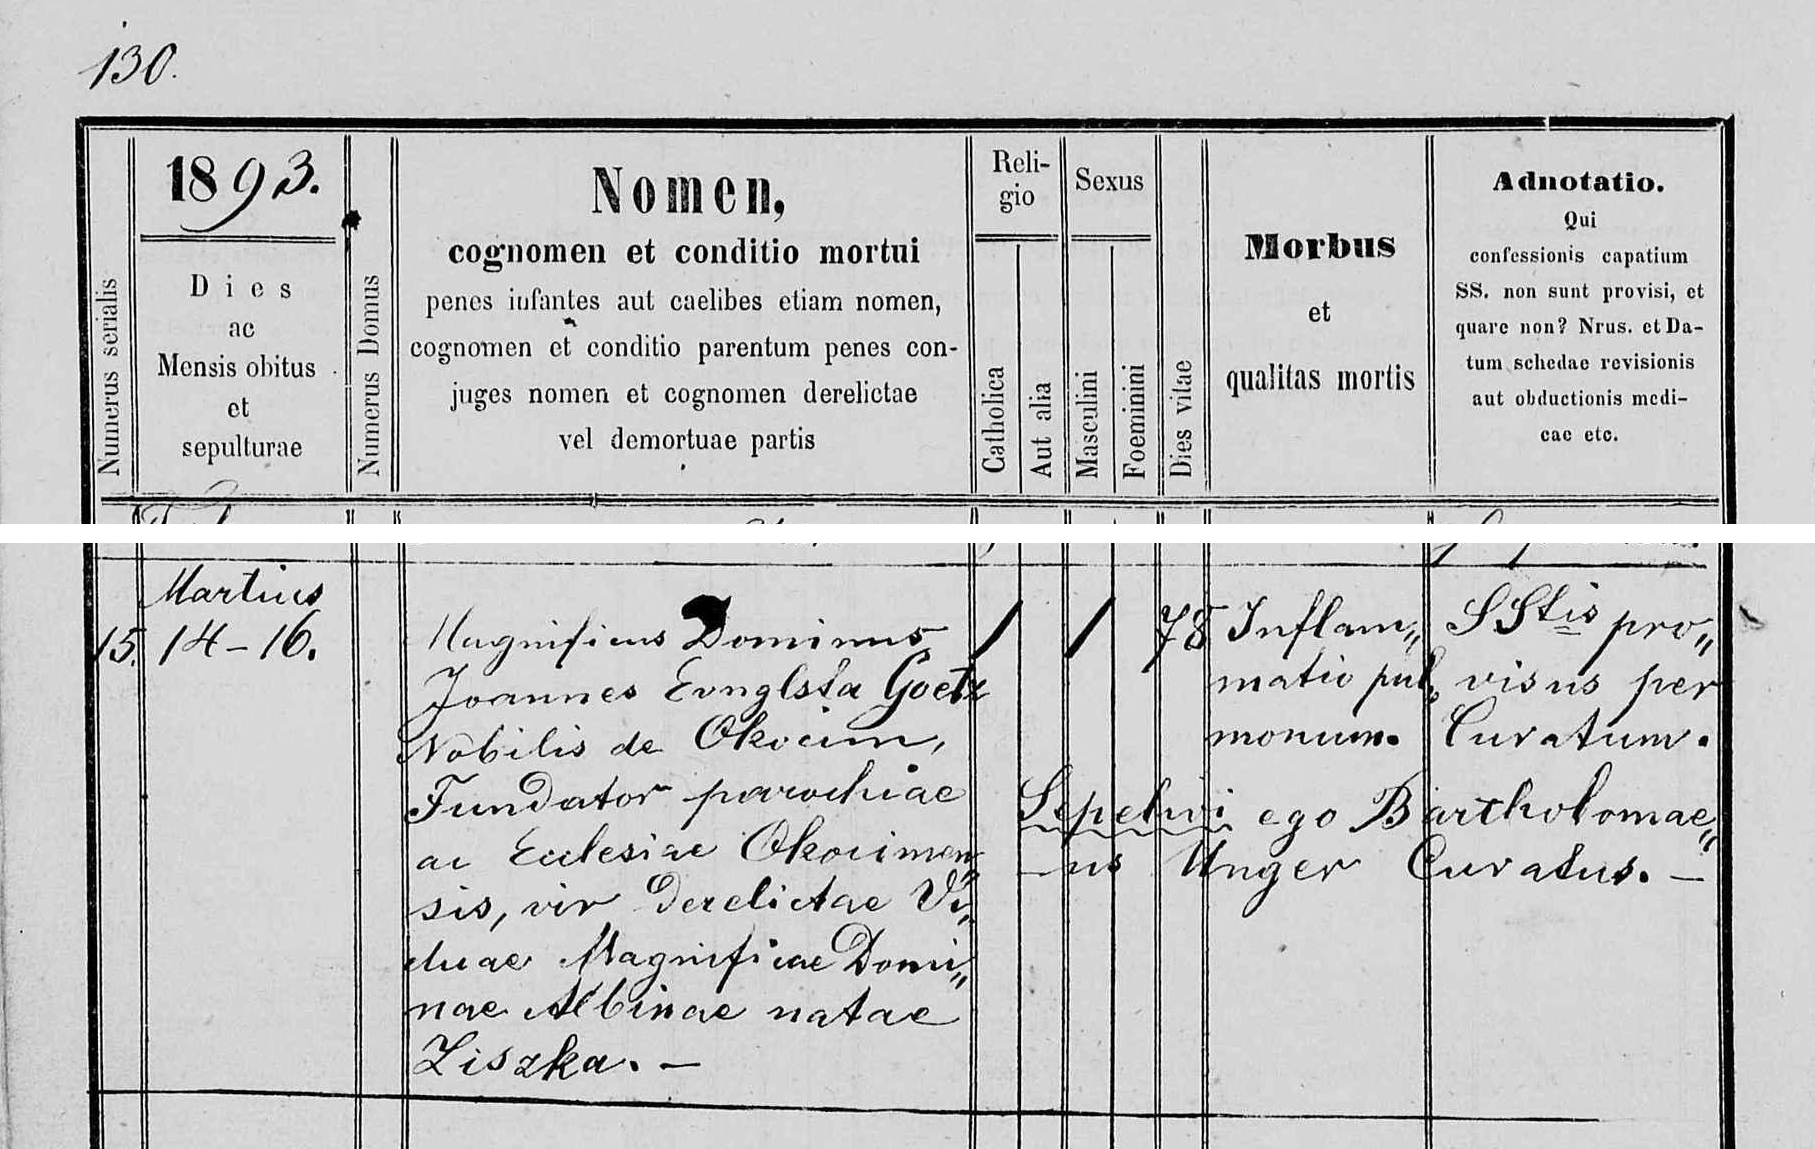 130.
Numerus serialis
1893.
Dies
ac
Mensis obitus
et
sepulturae
Numerus Domus
Nomen,
cognomen et conditio mortui
penes infantes aut caelibes etiam nomen,
cognomen et conditio parentum penes con-
juges nomen et cognomen derelictae
vel demortuae partis
Reli-
gio
Catholica
Aut alia
Sexus
Masculini
Foeminini
Dies vitae
Morbus
et
qualitas mortis
Adnotatio.
Qui
confessionis capatium
SS. non sunt provisi, et
quare non? Nrus. et Da-
tum schedae revisionis
aut obductionis medi-
cae etc.
Martius
15. 14-16.
Magnificus Dominus
Joannes Evnglsta Goetz
Nobilis de Okocim,
Fundator parochiae
ac Ecclesiae Okocimen„
sis, vir derelictae Vi„
duae Magnificae Domi„
nae Albinae natae
Ziszka. —
/ / 78
Inflam„
matio pul„
monum.
SStis pro„
visus per
Curatum.
Sepelivi ego Bartholomae„
-us Unger Curatus. —